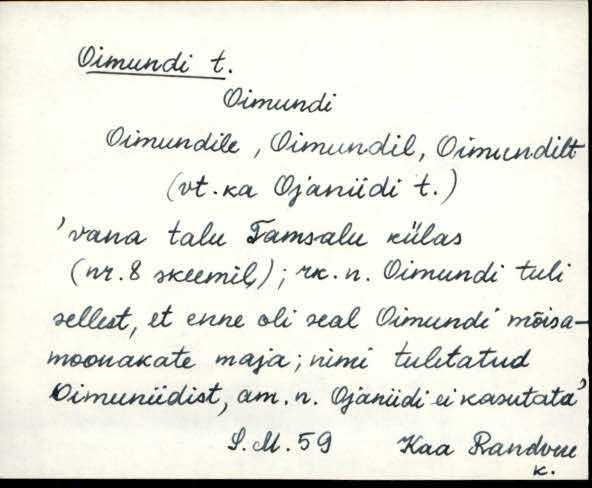 Oimundi t.
Oimundi
Oimundile, Oimundil, Oimundilt
(vt. ka Ojaniidi t.)
'vana talu Tamsalu külas
(nr. 8 skeemil); rk. n. Oimundi tuli
sellest, et enne oli seal Oimundi mõisa-
moonakate maja; nimi tuletatud
Oimuniidist, am. n. Ojaniidi ei kasutata'
S. M. 59 Kaa Randvee
k.